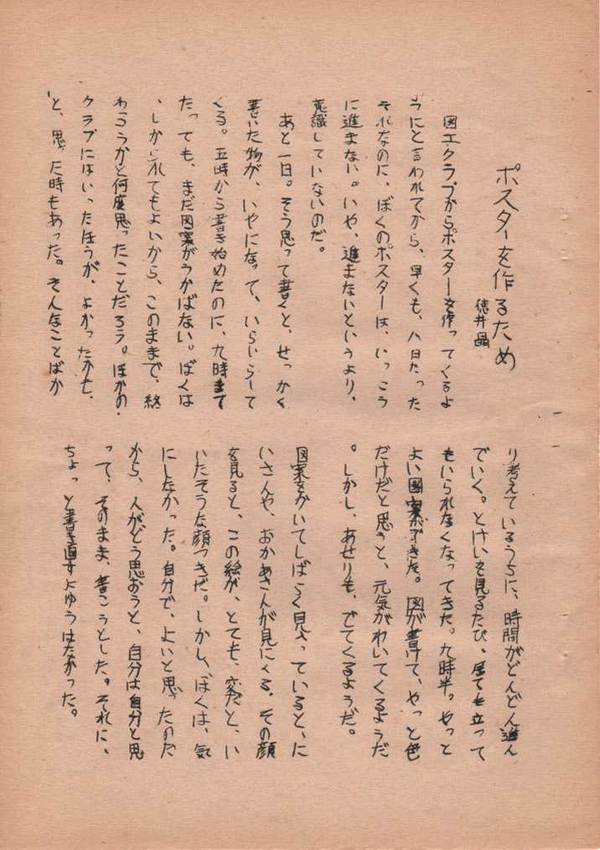 ポスターを作るため
徳井晶
図工クラブからポスターを作ってくるよ
うにと言われてから、早くも、八日たった
それなのに、ぼくのポスターは、いっこう
に進まない。いや、進まないというより、
意識していないのだ。
あと一日。そう思って書くと、せっかく
書いた物が、いやになって、いらいらして
くる。五時から書き始めたのに、九時まで
たっても、まだ図案がうかばない。ぼくは
、しかられてもよいから、このままで、終
わろうかと何度思ったことだろう。ほかの
クラブにはいったほうが、よかったかな、
と、思った時もあった。そんなことばか
り考えているうちに、時間がどんどん進ん
でいく。とけいを見るたび、居ても立って
もいられなくなってきた。九時半。やっと
よい図案ができた。図が書けて、やっと色
だけだと思うと、元気がわいてくるようだ
。しかし、あせりも、でてくるようだ。
図案をかいてしばらく見入っていると、に
いさんや、おかあさんが見にくる。その顔
を見ると、この絵が、とても、変だと、い
いたそうな顔つきだ。しかし、ぼくは、気
にしなかった。自分で、よいと思ったのだ
から、人がどう思おうと、自分は自分と思
って、そのまま、書こうとした。それに、
ちょっと書き直すよゆうはなかった。